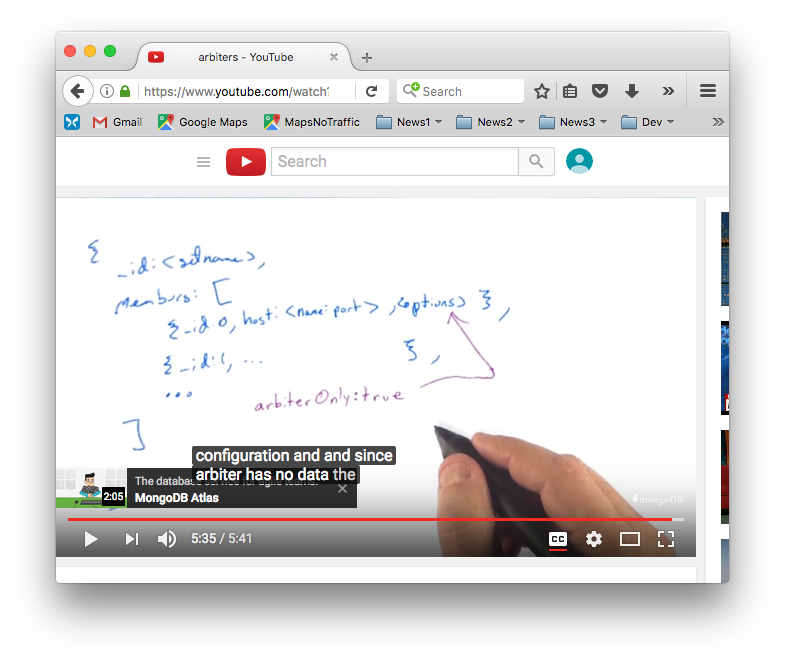 arbiters - YouTube
https://www.youtube.com/watch?
Search
Gmail
Google Maps
MapsNoTraffic
News1
News2
News3
Dev
Search
{
_id:<setname>,
members: [
{_id:0, host:<name:port>,<options>},
{_id:1, ... },
...
arbiterOnly:true
]
configuration and and since
arbiter has no data the
2:05
MongoDB Atlas
mongoDB
5:35 / 5:41
CC